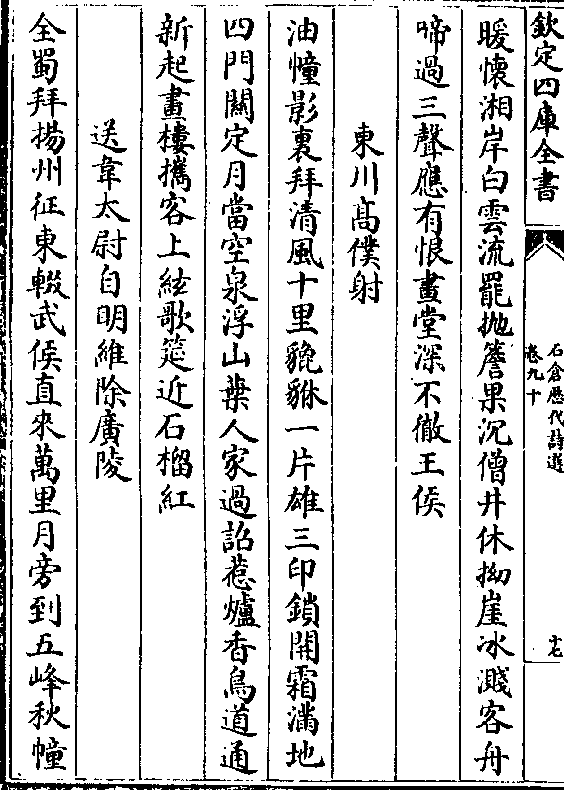 欽定四庫全書
石倉歷代詩選
卷九十
十七
暖懷湘岸白雲流罷抛簷果沉僧井休拗崖冰濺客舟
啼過三聲應有恨畫堂深不徹王侯
東川髙僕射
油幢影裏拜清風十里貔貅一片雄三印鎖開霜滿地
四門關定月當空泉浮山葉人家過詔惹爐香鳥道通
新起畫樓攜客上絃歌筵近石榴紅
送韋太尉自明維除廣陵
全蜀拜揚州征東輟武侯直來萬里月旁到五峰秋幢